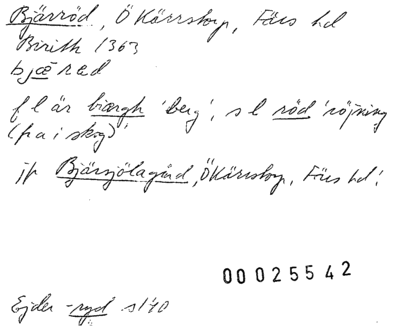 Bjärröd, Ö Kärrstorp, Färs hd
Birith 1363
bjærad
f l är biærgh 'berg', s l röd 'röjning
(fra i skog)'
jfr Bjärsjölagård, Ö Kärrstorp, Färs hd!
00025542
Ejder -ryd s 140